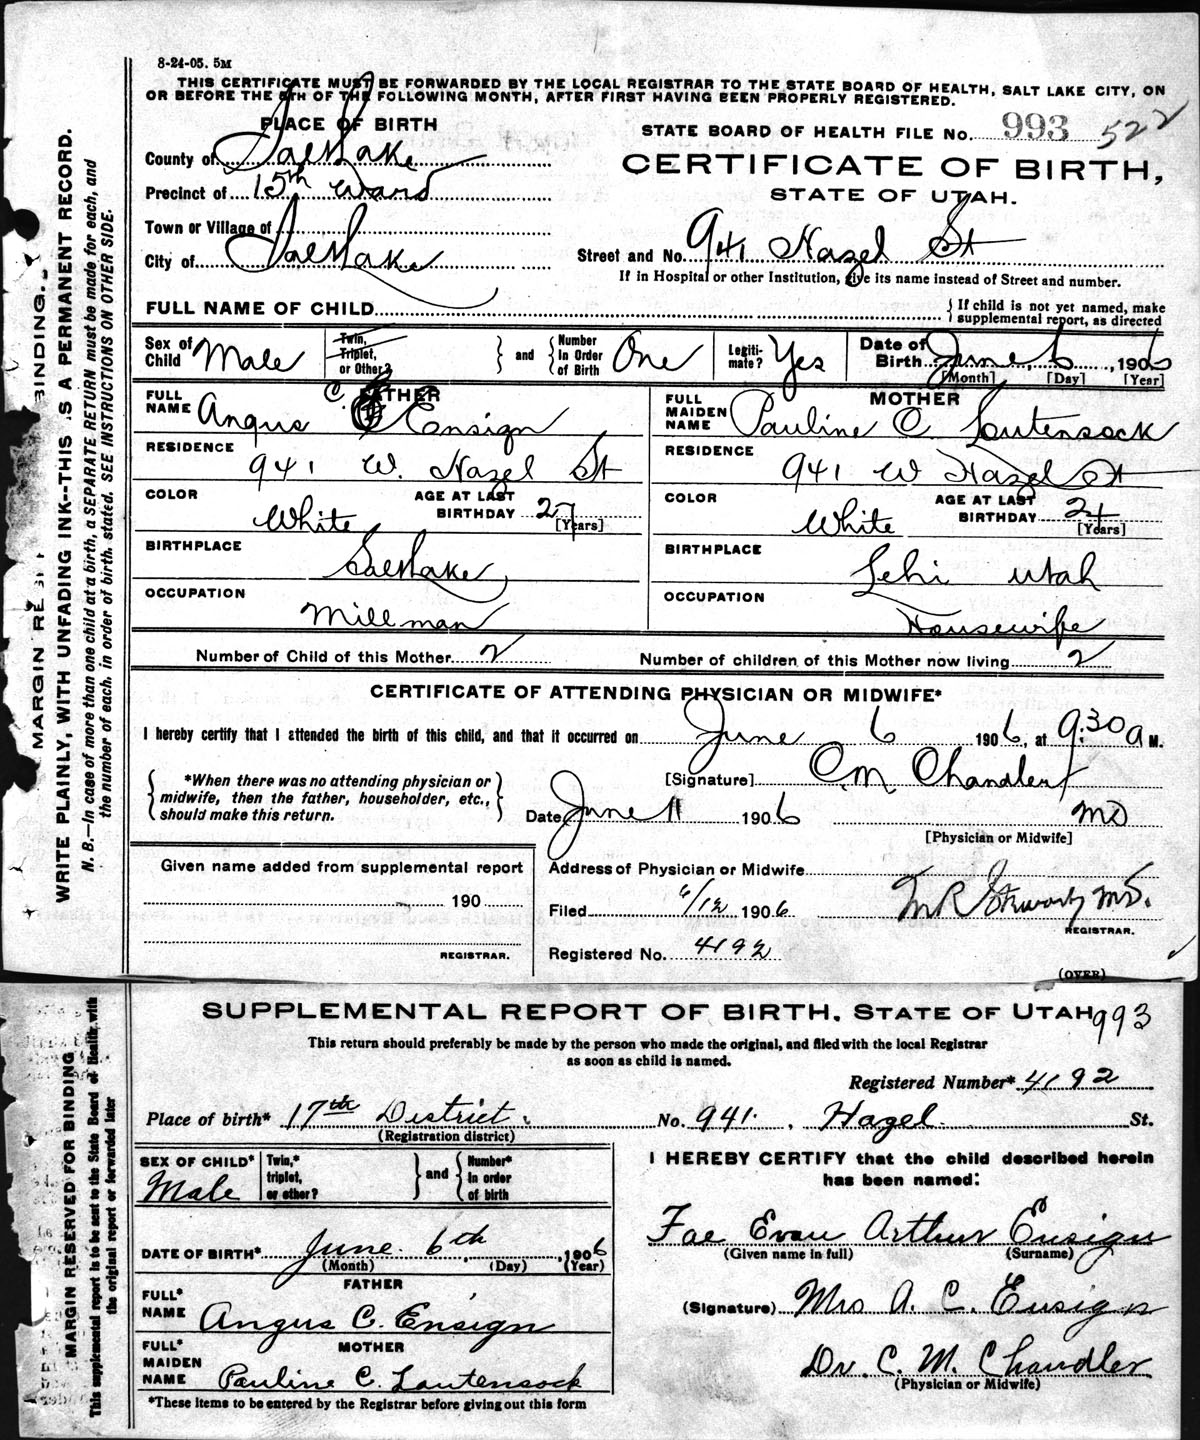 8-24-05. 5M
THIS CERTIFICATE MUST BE FORWARDED BY THE LOCAL REGISTRAR TO THE STATE BOARD OF HEALTH, SALT LAKE CITY, ON
OR BEFORE THE 5TH OF THE FOLLOWING MONTH, AFTER FIRST HAVING BEEN PROPERLY REGISTERED.
PLACE OF BIRTH
STATE BOARD OF HEALTH FILE No. 993 522
County of Salt Lake
CERTIFICATE OF BIRTH,
Precinct of 15th Ward
STATE OF UTAH.
Town or Village of
City of Salt Lake
Street and No. 941 Hazel St
If in Hospital or other Institution, give its name instead of Street and number.
FULL NAME OF CHILD
If child is not yet named, make
supplemental report, as directed
Sex of Child Male
Twin, Triplet, or Other?
and
Number in Order of Birth One
Legitimate? Yes
Date of Birth June 6, 1906
[Month] [Day] [Year]
FATHER
FULL NAME Angus C. Ensign
RESIDENCE 941 W. Hazel St
COLOR White
AGE AT LAST BIRTHDAY 27
[Years]
BIRTHPLACE Salt Lake
OCCUPATION Millman
MOTHER
FULL MAIDEN NAME Pauline C. Loutensock
RESIDENCE 941 W Hazel St
COLOR White
AGE AT LAST BIRTHDAY 24
[Years]
BIRTHPLACE Lehi Utah
OCCUPATION Housewife
Number of Child of this Mother 2
Number of children of this Mother now living 2
CERTIFICATE OF ATTENDING PHYSICIAN OR MIDWIFE*
I hereby certify that I attended the birth of this child, and that it occurred on June 6 1906, at 9:30 A M.
*When there was no attending physician or
midwife, then the father, householder, etc.,
should make this return.
[Signature] C. M. Chandler
Date June 11 1906 MD
[Physician or Midwife]
Given name added from supplemental report
190
REGISTRAR.
Address of Physician or Midwife
Filed 6/12 1906 MD.
REGISTRAR.
Registered No. 4192
(OVER)
MARGIN RESERVED FOR BINDING.
WRITE PLAINLY, WITH UNFADING INK--THIS IS A PERMANENT RECORD.
N. B.—In case of more than one child at a birth, a SEPARATE RETURN must be made for each, and
the number of each, in order of birth, stated. SEE INSTRUCTIONS ON OTHER SIDE.
SUPPLEMENTAL REPORT OF BIRTH, STATE OF UTAH 993
This return should preferably be made by the person who made the original, and filed with the local Registrar
as soon as child is named.
Registered Number* 4192
Place of birth* 17th District.
No. 941, Hazel St.
(Registration district)
SEX OF CHILD* Male
Twin,* triplet, or other?
and
Number* in order of birth
I HEREBY CERTIFY that the child described herein
has been named:
Fae Evan Arthur Ensign
(Given name in full) (Surname)
DATE OF BIRTH* June 6th, 1906
(Month) (Day) (Year)
FATHER
FULL* NAME Angus C. Ensign
(Signature) Mrs A. C. Ensign
MOTHER
FULL* MAIDEN NAME Pauline C. Lautensock
Dr. C. M. Chandler
(Physician or Midwife)
*These items to be entered by the Registrar before giving out this form
MARGIN RESERVED FOR BINDING
This supplemental report is to be sent to the State Board of Health with
the original report or forwarded later